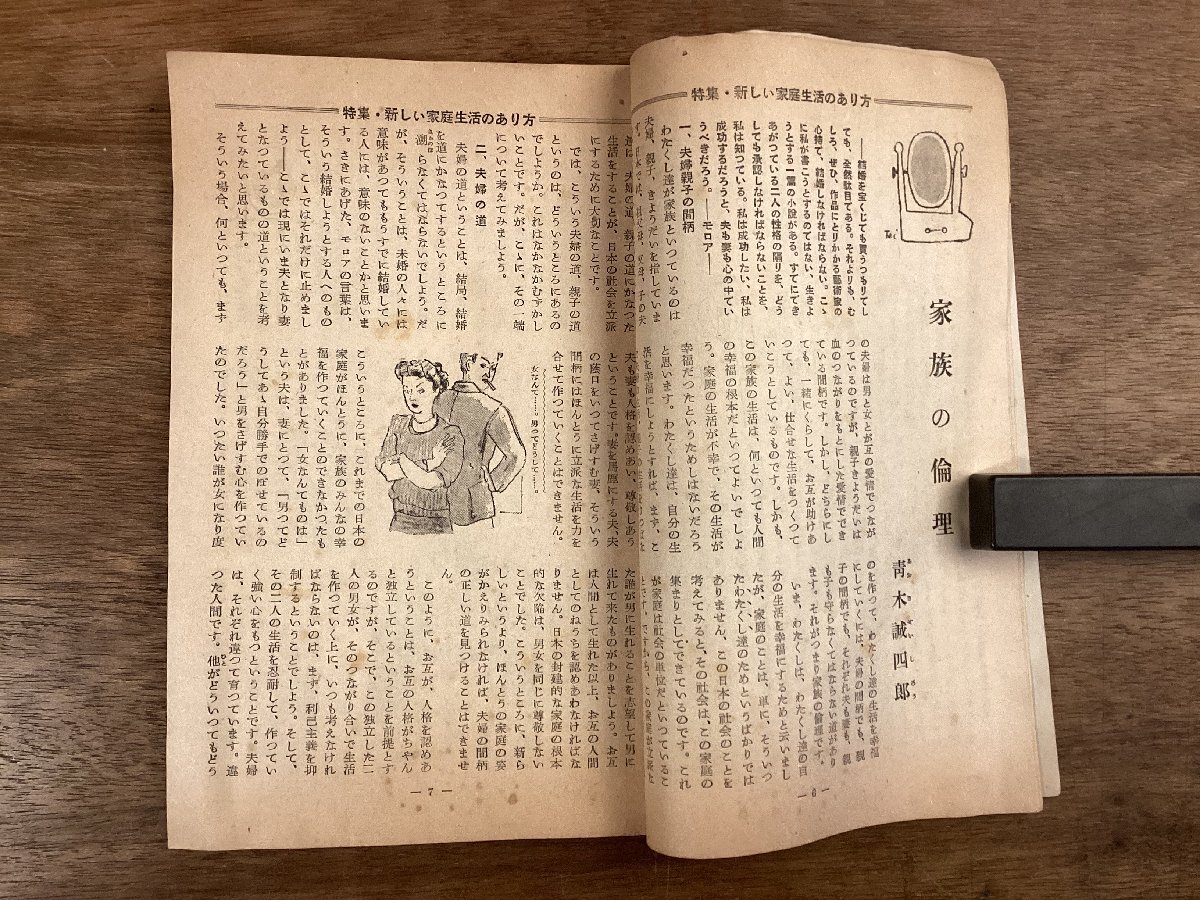 特集・新しい家庭生活のあり方
家族の倫理
青木誠四郎
――結婚を宝くじでも買うつもりでし
ても、全然駄目である。それよりも、む
しろ、ぜひ、作品にとりかかる藝術家の
心持で、結婚しなければならない。こゝ
に私が書こうとするのではない、生きよ
うとする一篇の小説がある。すでにでき
あがつている二人の性格の隔りを、どう
しても承認しなければならないことを、
私は知つている。私は成功したい、私は
成功するだろうと、夫も妻も心の中でい
うべきだろう。――モロア――
一、夫婦親子の間柄
わたくし達が家族といつているのは
夫婦、親子、きようだいを指していま
の夫婦は男と女とが互の愛情でつなが
つているのですが、親子きようだいは
血のつながりをもとにした愛情ででき
ている間柄です。しかし、どちらにし
ても、一緒にくらして、お互が助けあ
つて、よい、仕合せな生活をつくつて
いこうとしているものです。しかも、
この家族の生活は、何といつても人間
の幸福の根本だといつてよいでしよ
う。家庭の生活が不幸で、その生活が
幸福だつたというためしはないだろう
と思います。わたくし達は、自分の生
活を幸福にしようとすれば、まず、こ
のを作つて、わたくし達の生活を幸福
にしていくには、夫婦の間柄でも、親
子の間柄でも、それぞれ夫も妻も、親
も子も守らなくてはならない道があり
ます。それがつまり家族の倫理です。
いま、わたくしは、わたくし達の自
分の生活を幸福にするためと云いまし
たが、家庭のことは、單に、そういつ
たわたくし達のためというばかりでは
ありません、この日本の社会のことを
考えてみると、その社会は、この家庭の
集まりとしてできているのです。これ
が家庭は社会の單位だといつているこ
― 6 ―
特集・新しい家庭生活のあり方
達は、夫婦の道、親子の道にかなつた
生活をすることが、日本の社会を立派
にするために大切なことです。
では、こういう夫婦の道、親子の道
というのは、どういうところにあるの
でしようか。これはなかなかむずかし
いことです。だが、こゝに、その一端
について考えてみましよう。
二、夫婦の道
夫婦の道ということは、結局、結婚
を道にかなつてするというところに
溯らなくてはならないでしよう。だ
が、そういうことは、未婚の人々には
意味があつてももうすでに結婚してい
る人には、意味のないことかと思いま
す。さきにあげた、モロアの言葉は、
そういう結婚しようとする人へのもの
として、こゝではそれだけに止めまし
よう――こゝでは現にいま夫となり妻
となつているものの道ということを考
えてみたいと思います。
そういう場合、何といつても、まず
夫も妻も人格を認めあい、尊敬しあう
ということです。妻を馬鹿にする夫、夫
の蔭口をいつてさげすむ妻、そういう
間柄にはほんとうに立派な生活を力を
合せて作つていくことはできません。
女なんて……。男つてどうして……。
こういうところに、これまでの日本の
家庭がほんとうに、家族のみんなの幸
福を作つていくことのできなかつたも
とがありました。「女なんてものは」
という夫は、妻にとつて、「男つてど
うしてあゝ自分勝手でのぼせているの
だろう」と男をさげすむ心を作つてい
たのでした。いつたい誰が女になり度
た誰が男に生れることを志望して男に
生れて来たものがありましよう。お互
は人間として生れた以上、お互の人間
としてのねうちを認めあわなければな
りません。日本の封建的な家庭の根本
的な欠陥は、男女を同じに尊敬しない
ことでした。こういうところに、新ら
しいというより、ほんとうの家庭の姿
がかえりみられなければ、夫婦の間柄
の正しい道を見つけることはできませ
ん。
このように、お互が、人格を認めあ
うということは、お互の人格がちやん
と独立しているということを前提とす
るのですが、そこで、この独立した二
人の男女が、そのつながり合いで生活
を作つていく上に、いつも考えなけれ
ばならないのは、まず、利己主義を抑
制するということでしよう。そして、
その二人の生活を忍耐して、作つてい
く強い心をもつということです。夫婦
は、それぞれ違つて育つています。違
つた人間です。他がどういつてもどう
― 7 ―